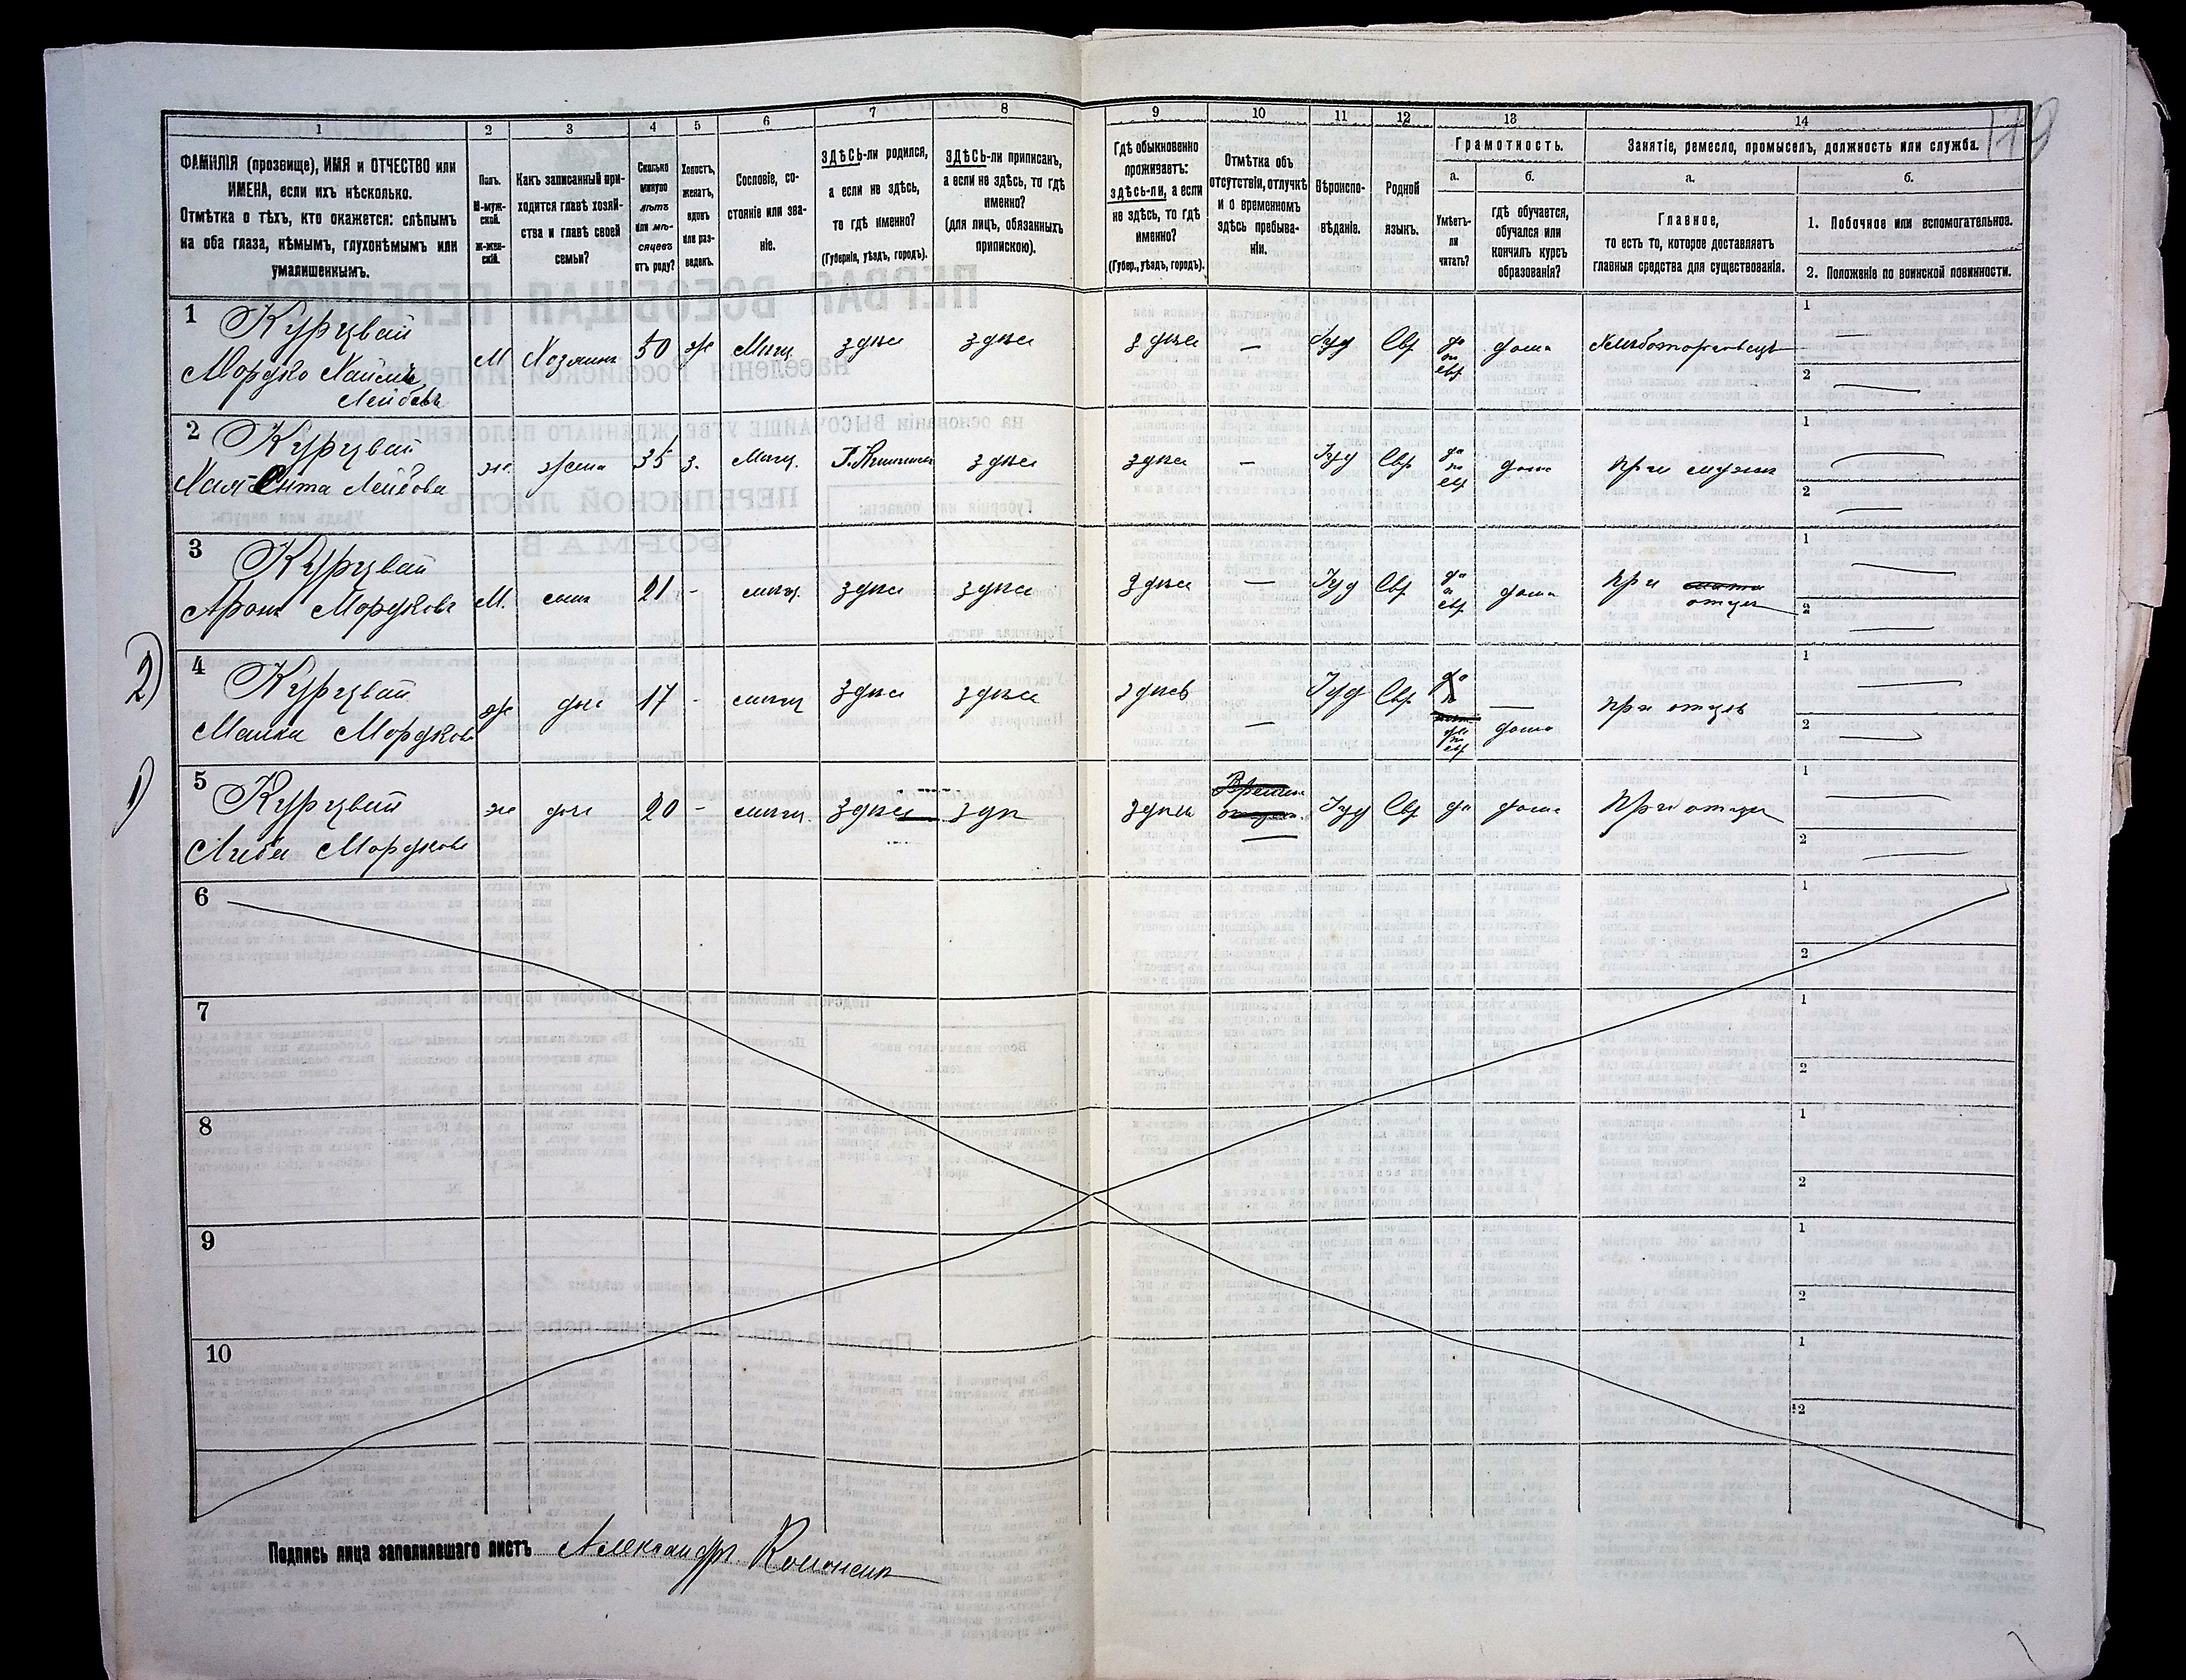 1 2 3 4 5 6 7 8 9 10 11 12 13 14
179
ФАМИЛІЯ (прозвище), ИМЯ и ОТЧЕСТВО или
ИМЕНА, если ихъ нѣсколько.
Отмѣтка о тѣхъ, кто окажется: слѣпымъ
на оба глаза, нѣмымъ, глухонѣмымъ или
умалишеннымъ.
Полъ.
М-муж-
ской.
Ж-жен-
скій.
Какъ записанный при-
ходится главѣ хозяй-
ства и главѣ своей
семьи?
Сколько
минуло
лѣтъ
или мѣ-
сяцевъ
отъ роду?
Холостъ,
женатъ,
вдовъ
или раз-
веденъ.
Сословіе, со-
стояніе или зва-
ніе.
ЗДѢСЬ-ли родился,
а если не здѣсь,
то гдѣ именно?
(Губернія, уѣздъ, городъ).
ЗДѢСЬ-ли приписанъ,
а если не здѣсь, то гдѣ
именно?
(для лицъ, обязанныхъ
припискою).
Гдѣ обыкновенно
проживаетъ:
здѣсь-ли, а если
не здѣсь, то гдѣ
именно?
(Губер., уѣздъ, городъ).
Отмѣтка объ
отсутствіи, отлучкѣ
и о временномъ
здѣсь пребыва-
ніи.
Вѣроиспо-
вѣданіе.
Родной
языкъ.
Грамотность.
а.
Умѣетъ-
ли
читать?
б.
гдѣ обучается,
обучался или
кончилъ курсъ
образованія?
Занятіе, ремесло, промыселъ, должность или служба.
а.
Главное,
то есть то, которое доставляетъ
главныя средства для существованія.
б.
1. Побочное или вспомогательное.
2. Положеніе по воинской повинности.
1 Курцвай
Мордко Хаимъ
Лейбовъ
М Хозяинъ 50 ж Мѣщ. здѣсь здѣсь здѣсь — Іуд Евр да по евр дома Хлѣботорговецъ
1 —
2 —
2 Курцвай
Лейбова
ж. жена 35 з. Мѣщ. здѣсь здѣсь — Іуд Евр да по евр дома при мужѣ
1 —
2 —
3 Курцвай
Аронъ Мордковъ
М. сынъ 21 - мѣщ. здѣсь здѣсь здѣсь — Іуд Евр да по евр дома при отцѣ
1 —
2 —
2)
4 Курцвай
Малка Мордкова
ж дочь 17 - мѣщ здѣсь здѣсь здѣсь — Іуд Евр да по евр дома при отцѣ
1 —
2 —
1)
5 Курцвай
Либа Мордкова
ж дочь 20 - мѣщ. здѣсь здѣсь здѣсь — Іуд Евр да дома При отцѣ
1 —
2 —
6
1
2
7
1
2
8
1
2
9
1
2
10
1
2
Подпись лица заполнившаго листъ Александръ